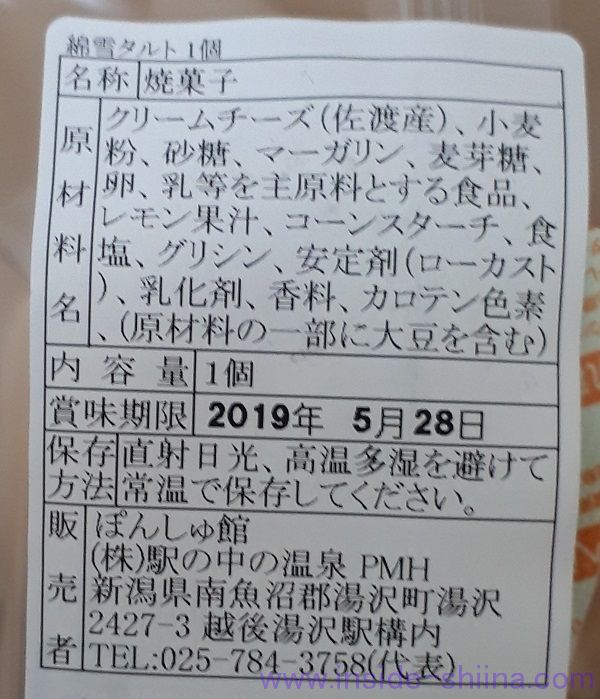 綿雪タルト 1個
名称 焼菓子
原材料名 クリームチーズ(佐渡産)、小麦
粉、砂糖、マーガリン、麦芽糖、
卵、乳等を主原料とする食品、
レモン果汁、コーンスターチ、食
塩、グリシン、安定剤(ローカスト
)、乳化剤、香料、カロテン色素
、(原材料の一部に大豆を含む)
内容量 1個
賞味期限 2019年 5月28日
保存方法 直射日光、高温多湿を避けて
常温で保存してください。
販売者 ぽんしゅ館
(株)駅の中の温泉 PMH
新潟県南魚沼郡湯沢町湯沢
2427-3 越後湯沢駅構内
TEL:025-784-3758(代表)
www.inside-shiina.com